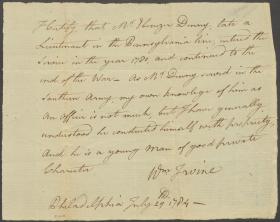 I Certify that Mr. Ebenezer Denny, late a
Lieutenant in the Pennsylvania line, entered the
Service in the year 1781, and continued to the
end of the War — As Mr. Denny served in the
Southern Army, my own knowledge of him as
An officer is not much, but I have generally
understood he conducted himself with propriety.
And he is a young Man of good private
Character
Wm. Irvine
Philadelphia July 29th 1784 —